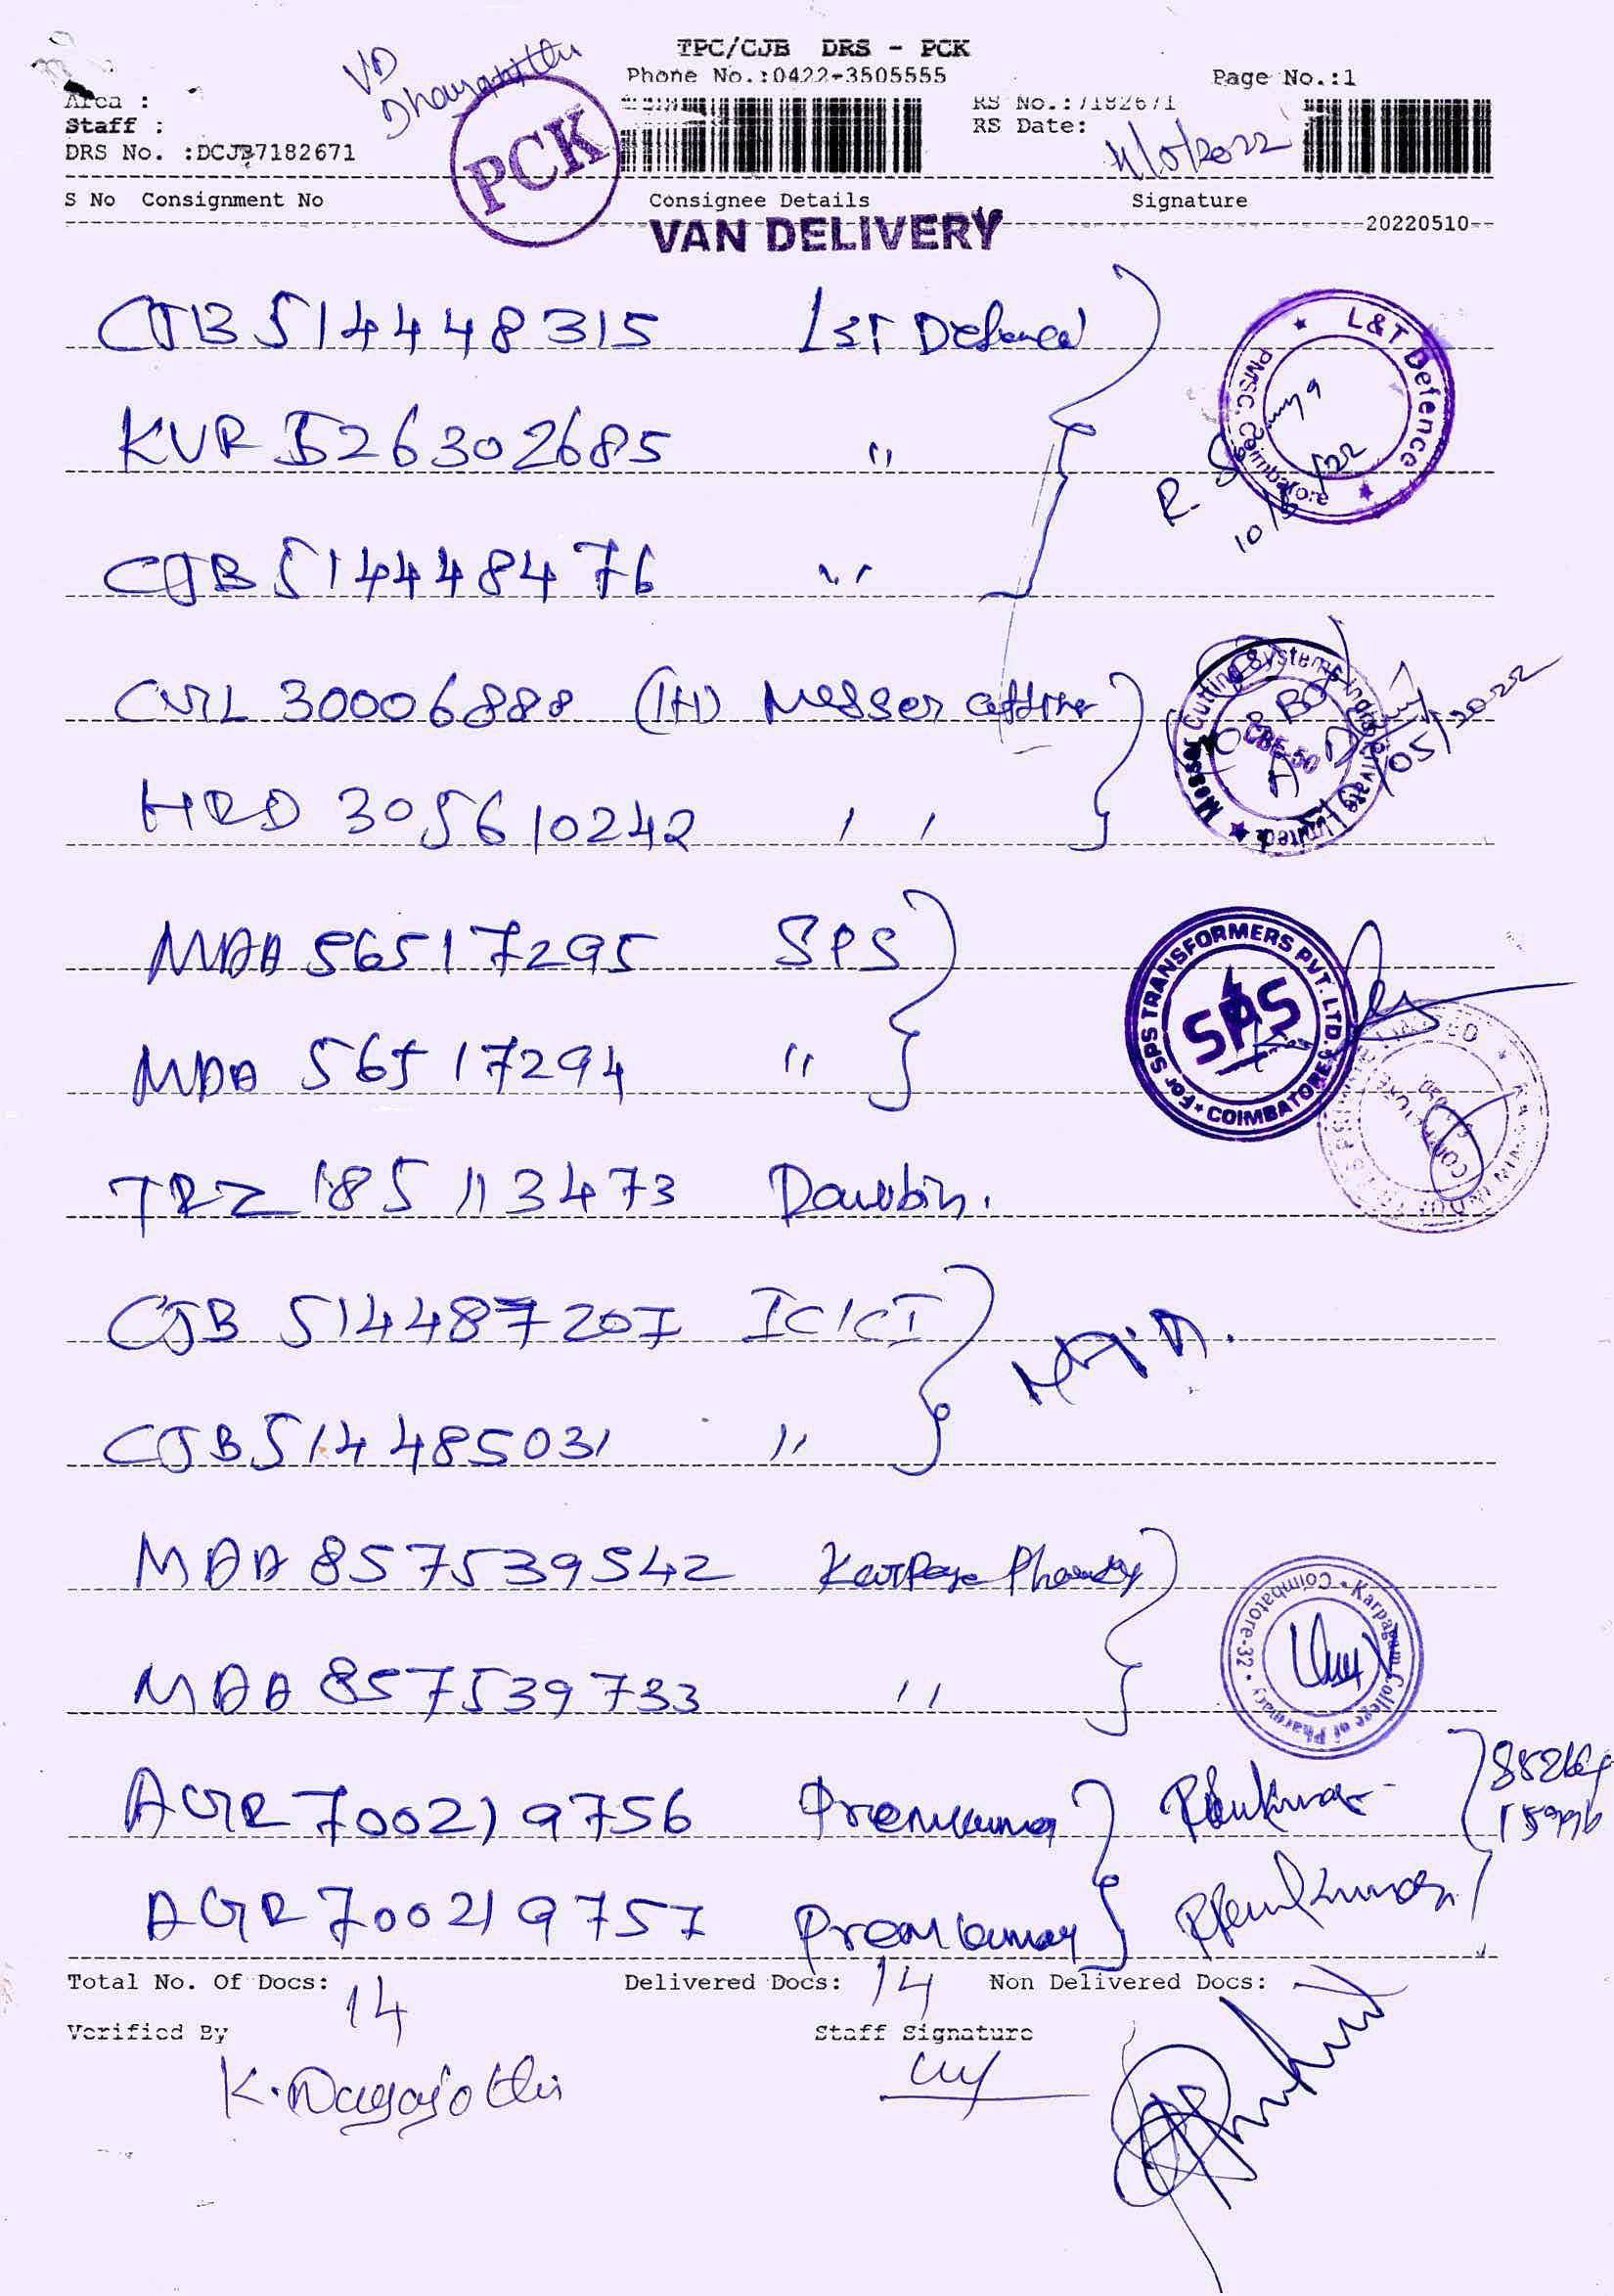 TPC/CJB DRS - PCK
Phone No.:0422-3505555
Page No.:1
VD
Area :
RS No.:7182671
Staff :
RS Date:
DRS No. :DCJB7182671
/5/2022
PCK
S No Consignment No Consignee Details Signature
VAN DELIVERY
20220510
CJB 514448315 L&T Defence
KVR 526302685 "
CJB 514448476 "
L&T Defence
PMSC, Coimbatore
10/5/22
30006888 (IH) Messer
HRD 305610242 "
Messer Cutting Systems India Private Limited
/05/2022
MAA 56517295 SPS
MAA 56517294 "
For SPS TRANSFORMERS PVT. LTD.
SPS
COIMBATORE
TRZ 185113473
CJB 514487207 ICICI
CJB 514485031 "
MAA 857539542
MAA 857539733 "
Karpagam College of Pharmacy
Coimbatore-32
AGR 700219756 Premkumar
AGR 700219757 Premkumar
Total No. Of Docs: 14 Delivered Docs: 14 Non Delivered Docs:
Verified By Staff Signature
K. Nagajothi